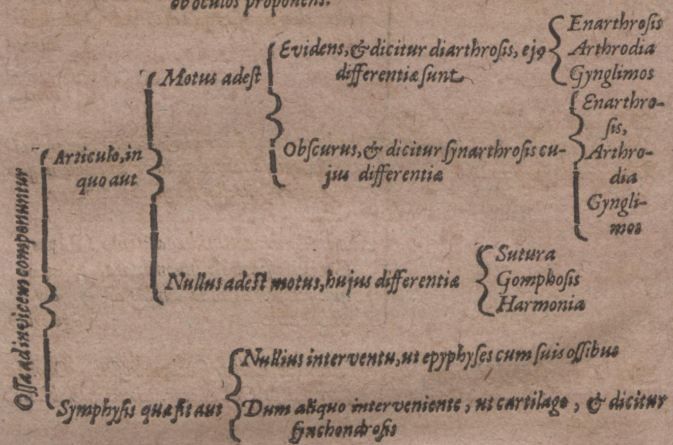 ob oculos proponens.
Ossa ad invicem componuntur
Articulo, in
quo aut
Motus adest
Evidens, & dicitur diarthrosis, ejq
differentiæ sunt
Enarthrosis
Arthrodia
Gynglimos
Obscurus, & dicitur synarthrosis cu-
jus differentiæ
Enarthro-
sis,
Arthro-
dia
Gyngli-
mos
Nullus adest motus, hujus differentiæ
Sutura
Gomphosis
Harmonia
Symphysis quæ fit aut
Nullius interventu, ut epyphyses cum suis ossibus
Dum aliquo interveniente, ut cartilago, & dicitur
synchondrosis